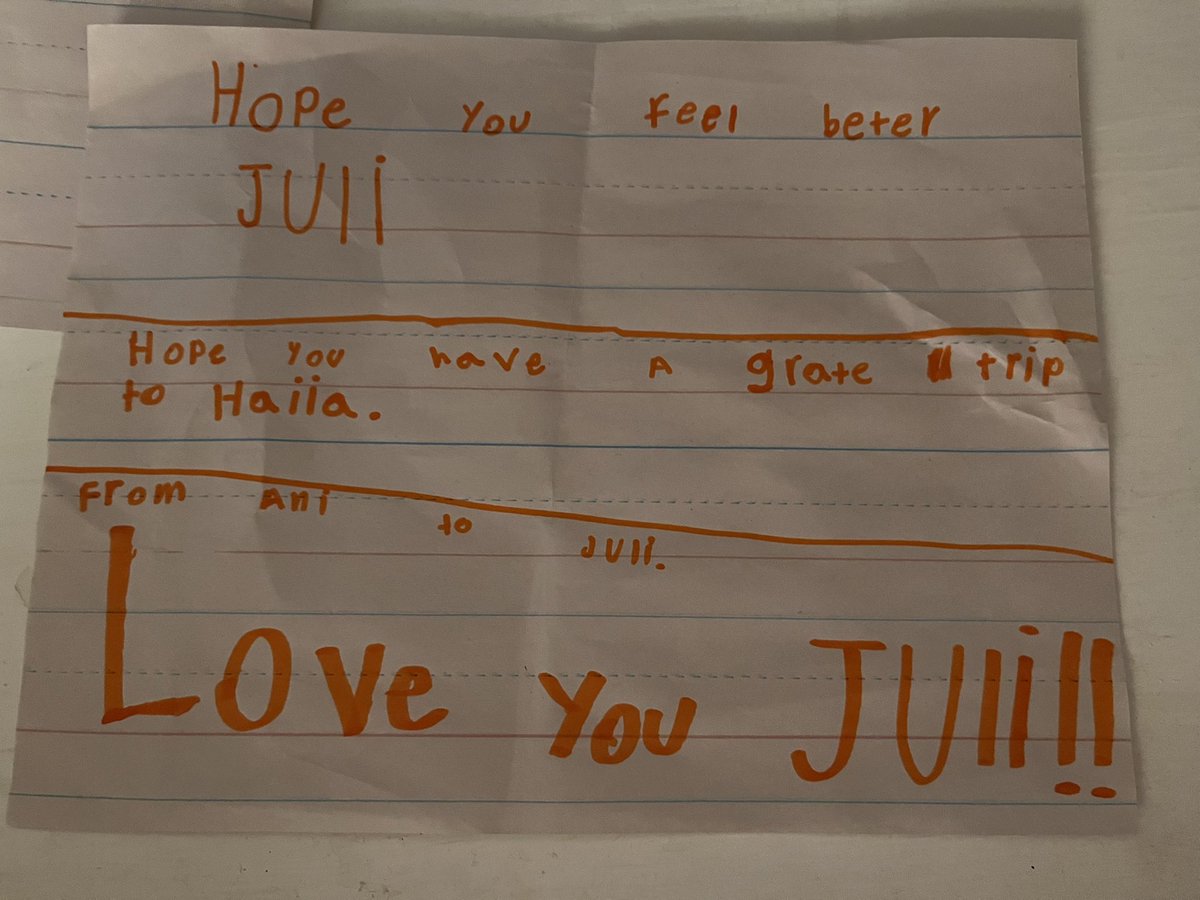 Hope you feel beter
JUli
Hope you have A grate trip
to Haiia.
From Ani to JUli.
Love you JUli!!